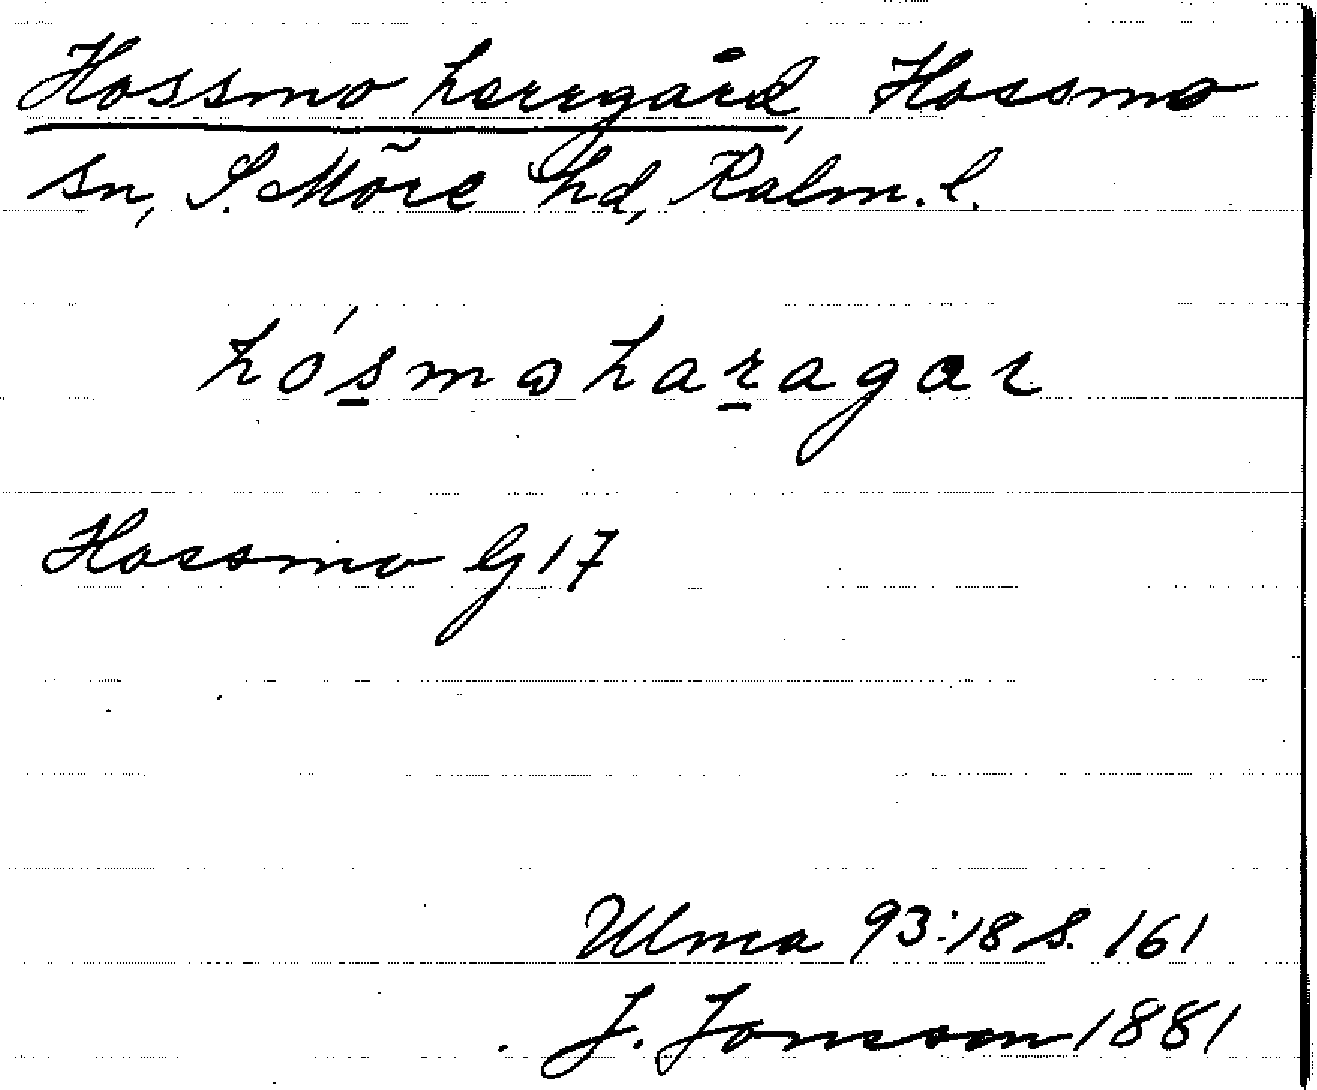 Hossmo herrgård, Hossmo
sn, S. Möre hd, Kalm. l.
hósmɷharagar
Hossmo G 17
Ulma 93:18 s. 161
J. Jonsson 1881